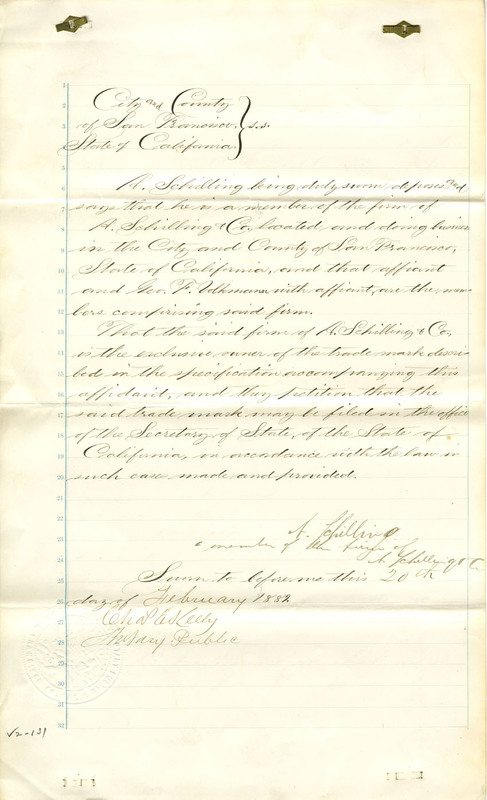 City and County
of San Francisco, } s.s.
State of California.
A. Schilling being duly sworn, deposes and
says that he is a member of the firm of
A. Schilling & Co, located and doing business
in the City and County of San Francisco,
State of California, and that affiant
and Geo. F. Volkmann, with affiant, are the mem-
bers comprising said firm.
That the said firm of A. Schilling & Co,
is the exclusive owner of the trade mark descri-
bed in the specification accompanying this
affidavit, and they petition that the
said trade mark may be filed in the office
of the Secretary of State, of the State of
California, in accordance with the law in
such case made and provided.
A. Schilling
a member of the firm of
A Schilling & Co
Sworn to before me this 20th
day of February 1882
Notary Public
V2-131
1
2
3
4
5
6
7
8
9
10
11
12
13
14
15
16
17
18
19
20
21
22
23
24
25
26
27
28
29
30
31
32